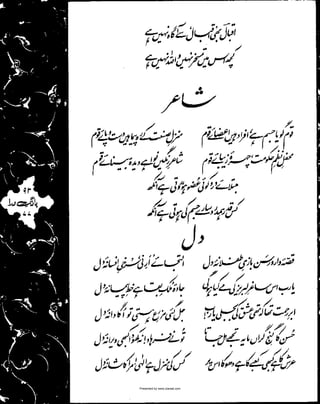 اقبال بھی اقبال سے آگاہ نہیں ہے
کچھ اس میں تمسخر نہیں واللہ نہیں ہے
شاعر
قوم گویا جسم ہے افراد ہیں اعضائے قوم منزل صنعت کے رہ پیما ہیں دست و پائے قوم
محفل نظم حکومت چہرۂ زیبائے قوم شاعر رنگیں نوا ہے دیدۂ بینائے قوم
مبتلائے درد کوئی عضو ہو روتی ہے آنکھ
کس قدر ہمدرد سارے جسم کی ہوتی ہے آنکھ
دل
قصۂ دار و رسن بازیٔ طفلانۂ دل التجائے ارنی سرخیٔ افسانۂ دل
یا رب اس ساغر لبریز کی مے کیا ہوگی جادۂ ملک بقا ہے خط پیمانۂ دل
ابر رحمت تھا کہ تھی عشق کی بجلی یا رب جل گئی مزرع ہستی تو اگا دانۂ دل
حسن کا گنج گراں مایہ تجھے مل جاتا تو نے فرہاد نہ کھودا کبھی ویرانۂ دل
عرش کا ہے کبھی کعبے کا ہے دھوکا اس پر کس کی منزل ہے الٰہی مرا کاشانۂ دل
بانگ درا